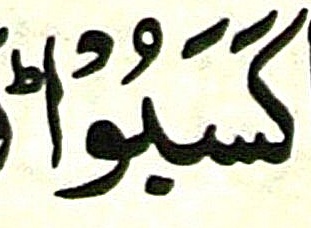 كَسَبُوْاؕ